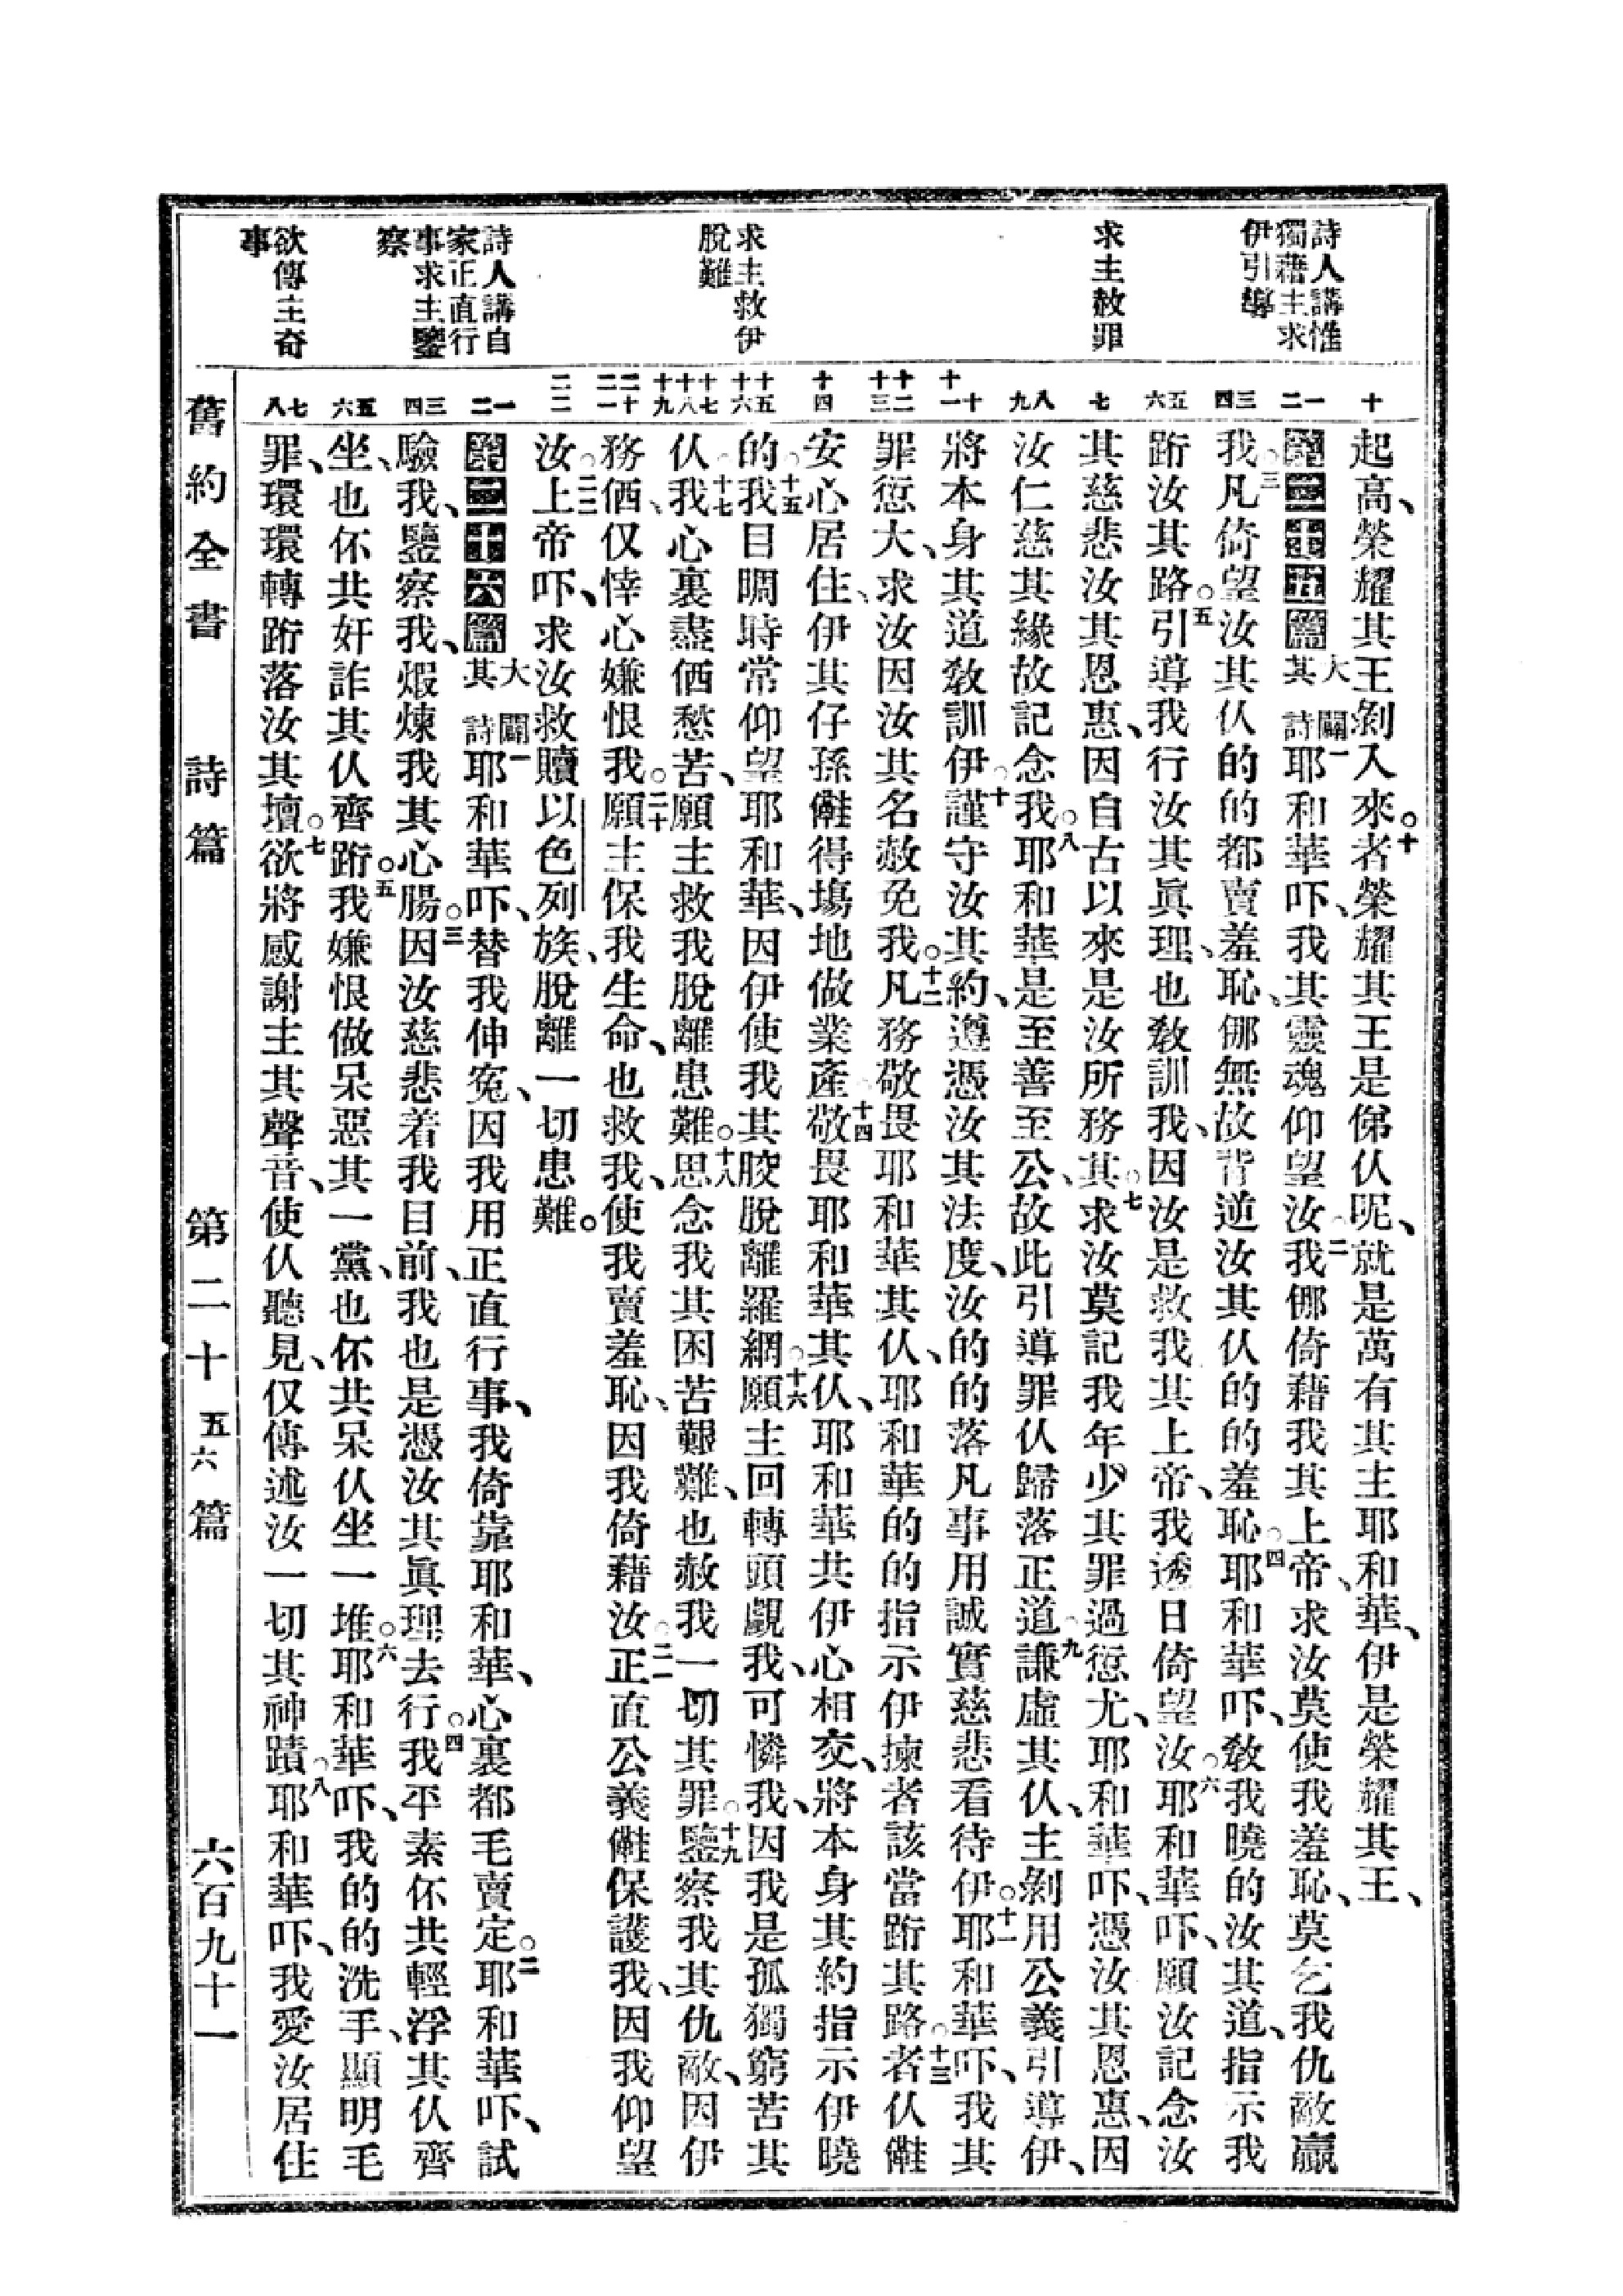 詩人講惟
獨藉主求
伊引導
求主赦罪
求主救伊
脫難
詩人講自
家正直行
事求主鑒
察
欲傳主奇
事
十
一二
三四
五六
七
八九
十十一
十二十三
十四
十五十六
十七十八十九
二十二一
二二
一二
三四
五六
七八
起高、榮耀其王剝入來。十者榮耀其王是俤仈呢、就是萬有其主耶和華、伊是榮耀其王、
第二十五篇 大闢其詩一耶和華吓、我其靈魂仰望汝。二我倻倚藉我其上帝、求汝莫使我羞恥、莫乞我仇敵贏
我。三凡倚望汝其仈的的都賣羞恥、倻無故背逆汝其仈的的羞恥。四耶和華吓、敎我曉的汝其道、指示我
跻汝其路。五引導我行汝其眞理、也敎訓我、因汝是救我其上帝、我透日倚望汝。六耶和華吓、願汝記念汝
其慈悲汝其恩惠、因自古以來是汝所務其。七求汝莫記我年少其罪過愆尤、耶和華吓、憑汝其恩惠、因
汝仁慈其緣故記念我。八耶和華是至善至公、故此引導罪仈歸落正道。九謙虛其仈、主剝用公義引導伊、
將本身其道敎訓伊。十謹守汝其約、遵憑汝其法度、汝的的落凡事用誠實慈悲看待伊。十一耶和華吓、我其
罪愆大、求汝因汝其名赦免我。十二凡務敬畏耶和華其仈、耶和華的的指示伊揀者該當跻其路。十三者仈儺
安心居住、伊其仔孫儺得塲地做業產。十四敬畏耶和華其仈、耶和華共伊心相交、將本身其約指示伊曉
的。十五我目睭時常仰望耶和華、因伊使我其骹脫離羅網。十六願主回轉頭覰我、可憐我、因我是孤獨窮苦其
仈。十七我心裏盡価愁苦、願主救我脫離患難。十八思念我其困苦艱難、也赦我一切其罪。十九鑒察我其仇敵、因伊
務価、仅悻心嫌恨我。二十願主保我生命、也救我、使我賣羞恥、因我倚藉汝。二一正直公義儺保護我、因我仰望
汝。二二上帝吓、求汝救贖以色列族、脫離一切患難。
第二十六篇 大闢其詩一耶和華吓、替我伸寃、因我用正直行事、我倚靠耶和華、心裏都毛賣定。二耶和華吓、試
驗我、鑒察我、煆煉我其心腸。三因汝慈悲着我目前、我也是憑汝其眞理去行。四我平素伓共輕浮其仈齊
坐、也伓共奸詐其仈齊跻。五我嫌恨做呆惡其一黨、也伓共呆仈坐一堆。六耶和華吓、我的的洗手、顯明毛
罪、環環轉跻落汝其壇。七欲將感謝主其聲音、使仈聽見、仅傳述汝一切其神蹟。八耶和華吓、我愛汝居住
舊約全書 詩篇 第二十五六篇 六百九十一